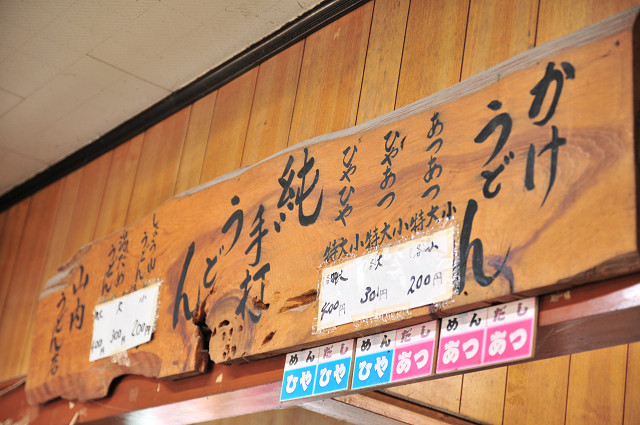 かけ
うどん
あつあつ
ひやあつ
ひやひや
特大小特大小特大小
小
200円
大
300円
特大
400円
純
手打
うどん
しょうゆ
うどん
湯だめ
うどん
小
200円
大
300円
400円
山内
うどん
めん だし
ひや ひや
めん だし
ひや あつ
めん だし
あつ あつ